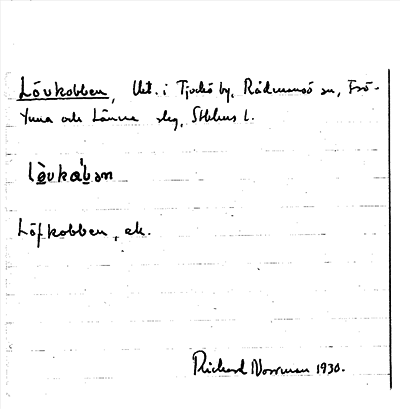 Lövkobben, Utt. i Tjockö by, Rådmansö sn, Frö-
tuna och Länna slg, Sthlms l.
lö̀vkàbən
Löfkobben, ek.
Rickard Norrman 1930.